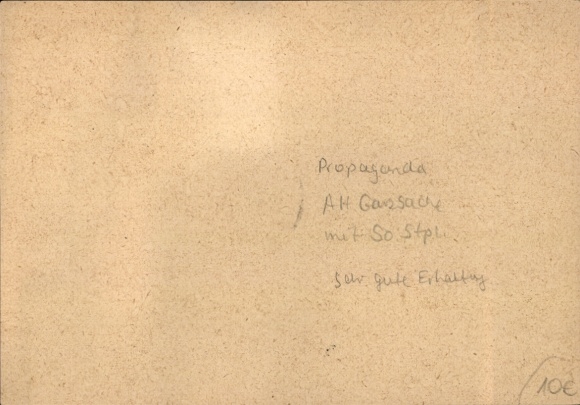 Propaganda
AH Ganzsache
mit So Stpl.
Sehr gute Erhaltung
10€